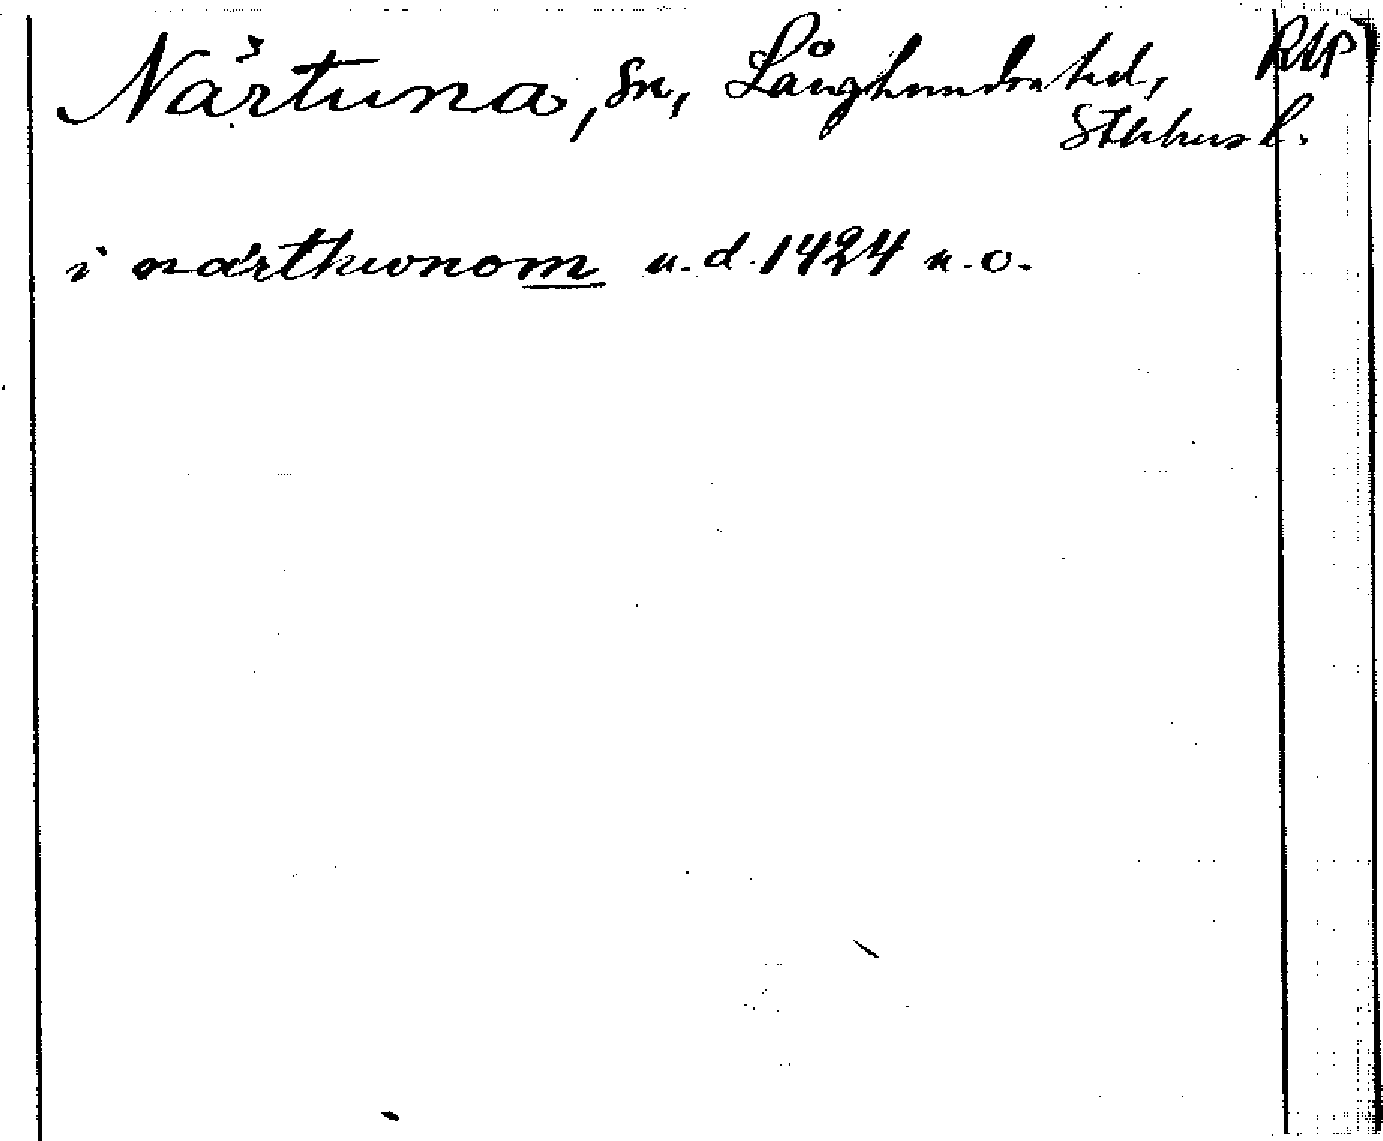 Närtuna, sn, Långhundra hd, RAP
Sthlms l.
i närthwnom u. d. 1424 u. o.